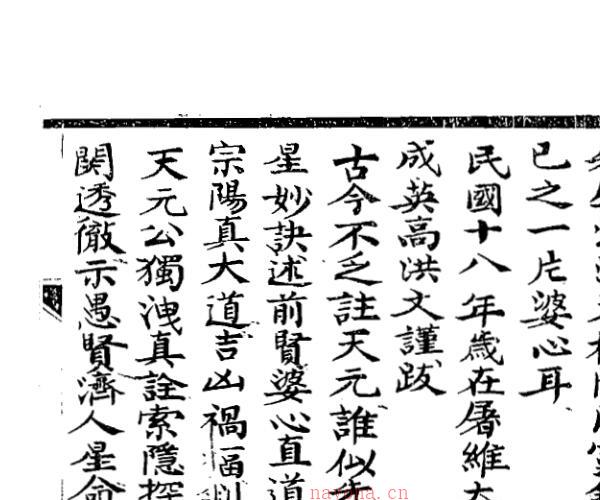 已之一片婆心耳
民國十八年歲在屠維大
成英高洪文謹跋
古今不乏註天元誰似
星妙訣述前賢婆心直道
宗陽真大道吉凶禍福
天元公獨洩真詮索隱探
闕透徹示愚賢濟人星命
nayona.cn